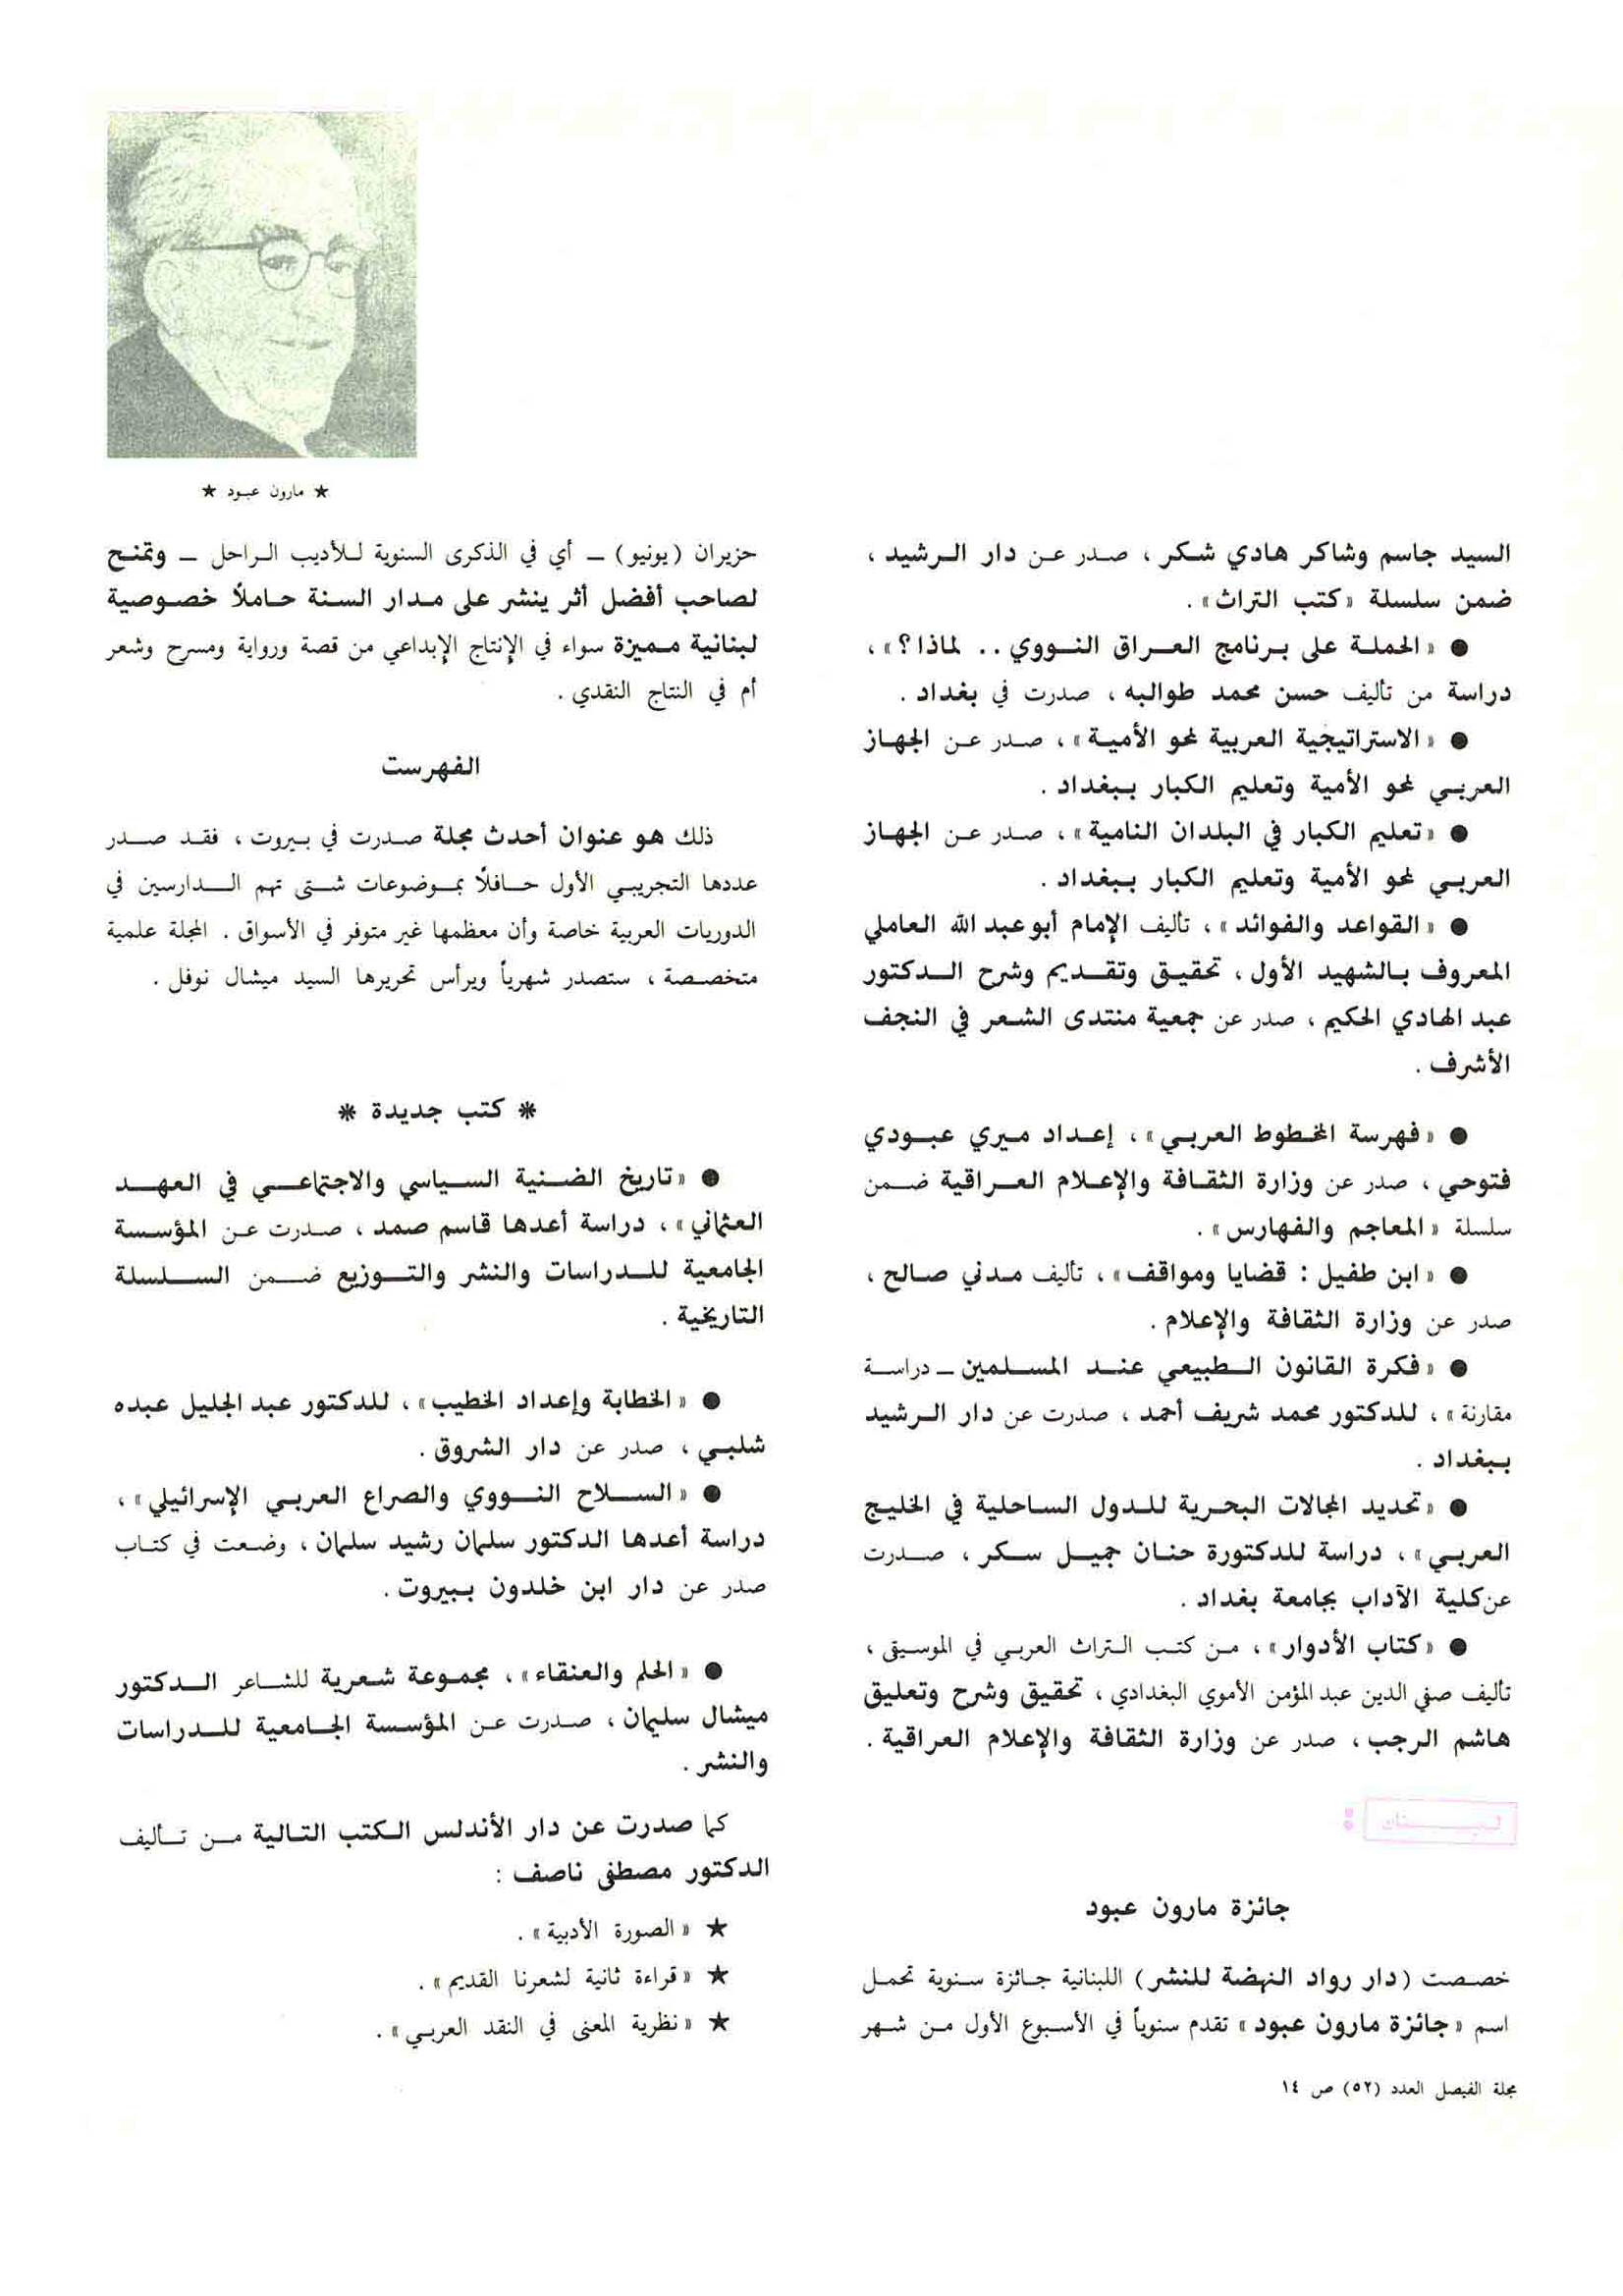 ★ مارون عبود ★
السيد جاسم وشاكر هادي شكر ، صدر عن دار الرشيد ،
ضمن سلسلة «كتب التراث» .
● «الحملة على برنامج العراق النووي .. لماذا ؟» ،
دراسة من تأليف حسن محمد طوالبه ، صدرت في بغداد .
● «الاستراتيجية العربية لمحو الأمية» ، صدر عن الجهاز
العربي لمحو الأمية وتعليم الكبار ببغداد .
● «تعليم الكبار في البلدان النامية» ، صدر عن الجهاز
العربي لمحو الأمية وتعليم الكبار ببغداد .
● «القواعد والفوائد» ، تأليف الإمام أبو عبد الله العاملي
المعروف بالشهيد الأول ، تحقيق وتقديم وشرح الدكتور
عبد الهادي الحكيم ، صدر عن جمعية منتدى الشعر في النجف
الأشرف .
● «فهرسة المخطوط العربي» ، إعداد ميري عبودي
فتوحي ، صدر عن وزارة الثقافة والإعلام العراقية ضمن
سلسلة «المعاجم والفهارس» .
● «ابن طفيل : قضايا ومواقف» ، تأليف مدني صالح ،
صدر عن وزارة الثقافة والإعلام .
● «فكرة القانون الطبيعي عند المسلمين ــ دراسة
مقارنة» ، للدكتور محمد شريف أحمد ، صدرت عن دار الرشيد
ببغداد .
● «تحديد المجالات البحرية للدول الساحلية في الخليج
العربي» ، دراسة للدكتورة حنان جميل سكر ، صدرت
عن كلية الآداب بجامعة بغداد .
● «كتاب الأدوار» ، من كتب التراث العربي في الموسيقى ،
تأليف صفي الدين عبد المؤمن الأموي البغدادي ، تحقيق وشرح وتعليق
هاشم الرجب ، صدر عن وزارة الثقافة والإعلام العراقية .
لبنان :
جائزة مارون عبود
خصصت (دار رواد النهضة للنشر) اللبنانية جائزة سنوية تحمل
اسم «جائزة مارون عبود» تقدم سنوياً في الأسبوع الأول من شهر
حزيران (يونيو) ــ أي في الذكرى السنوية للأديب الراحل ــ وتمنح
لصاحب أفضل أثر ينشر على مدار السنة حاملاً خصوصية
لبنانية مميزة سواء في الإنتاج الإبداعي من قصة ورواية ومسرح وشعر
أم في النتاج النقدي .
الفهرست
ذلك هو عنوان أحدث مجلة صدرت في بيروت ، فقد صدر
عددها التجريبي الأول حافلاً بموضوعات شتى تهم الدارسين في
الدوريات العربية خاصة وأن معظمها غير متوفر في الأسواق . المجلة علمية
متخصصة ، ستصدر شهرياً ويرأس تحريرها السيد ميشال نوفل .
* كتب جديدة *
● «تاريخ الضنية السياسي والاجتماعي في العهد
العثماني» ، دراسة أعدها قاسم صمد ، صدرت عن المؤسسة
الجامعية للدراسات والنشر والتوزيع ضمن السلسلة
التاريخية .
● «الخطابة وإعداد الخطيب» ، للدكتور عبد الجليل عبده
شلبي ، صدر عن دار الشروق .
● «السلاح النووي والصراع العربي الإسرائيلي» ،
دراسة أعدها الدكتور سلمان رشيد سلمان ، وضعت في كتاب
صدر عن دار ابن خلدون ببيروت .
● «الحلم والعنقاء» ، مجموعة شعرية للشاعر الدكتور
ميشال سليمان ، صدرت عن المؤسسة الجامعية للدراسات
والنشر .
كما صدرت عن دار الأندلس الكتب التالية من تأليف
الدكتور مصطفى ناصف :
★ «الصورة الأدبية» .
★ «قراءة ثانية لشعرنا القديم» .
★ «نظرية المعنى في النقد العربي» .
مجلة الفيصل العدد (٥٢) ص ١٤